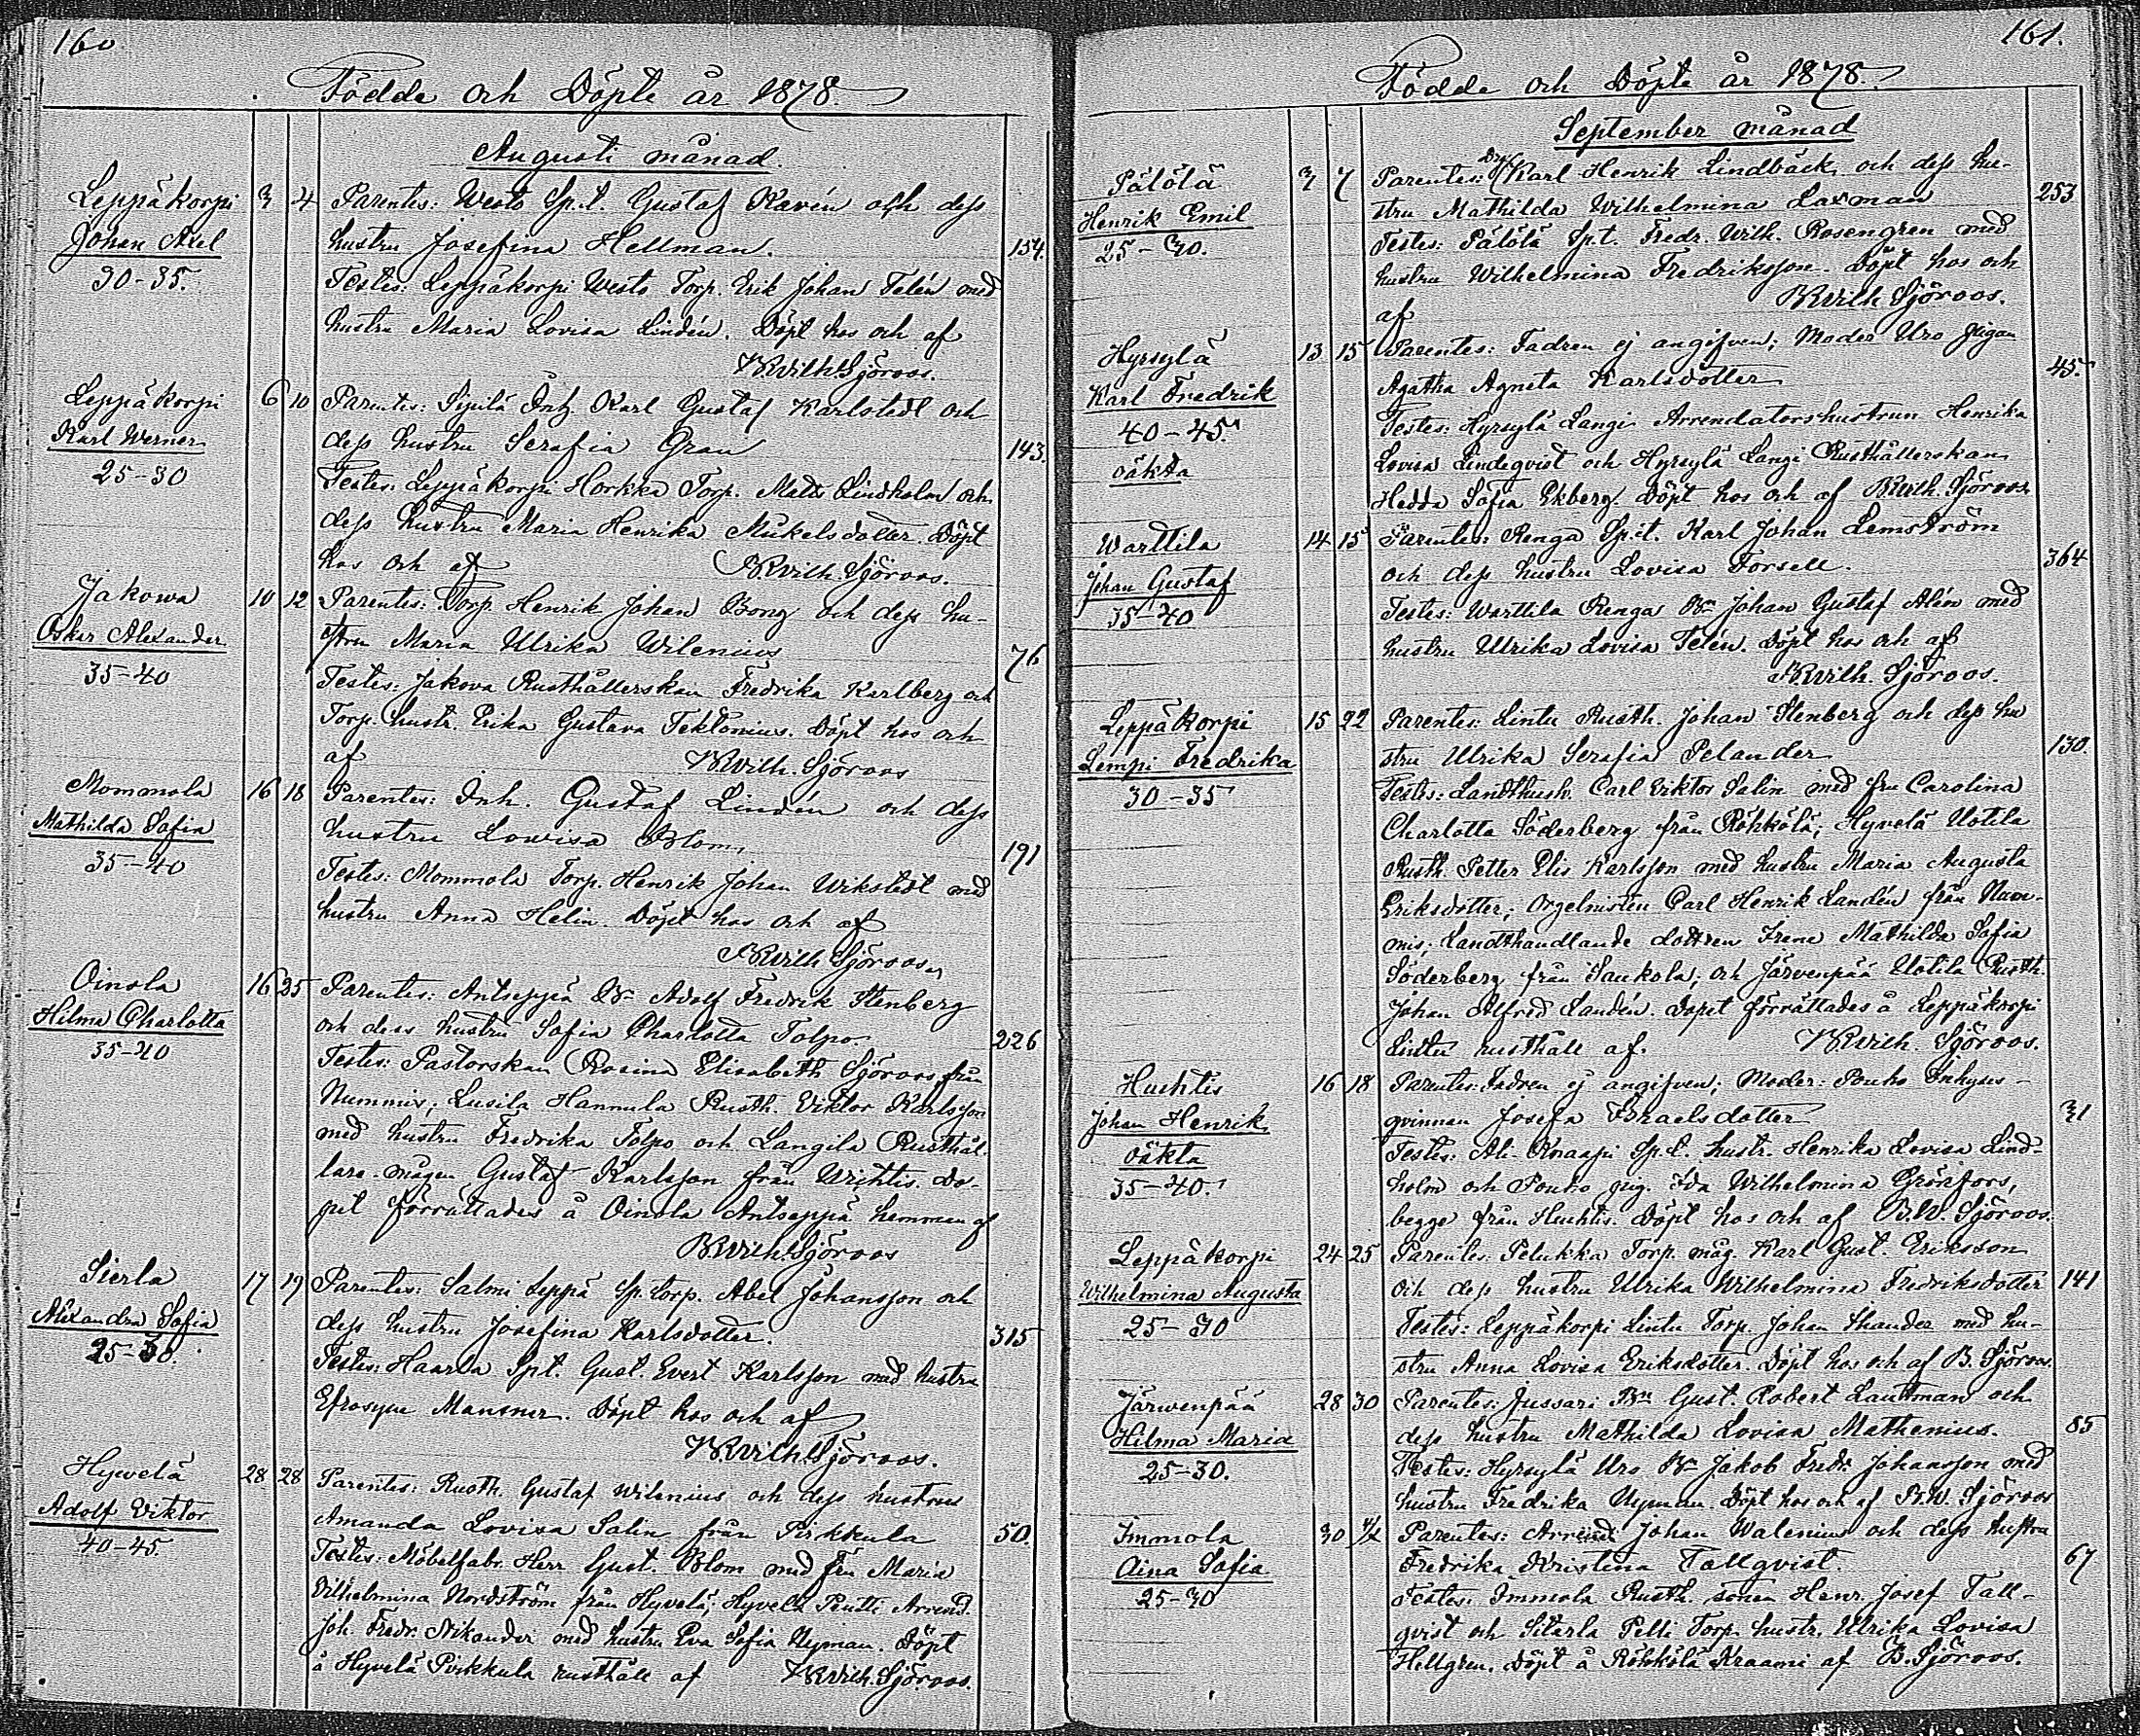 160
Födde och Döpte år 1878.
Augusti månad.
Leppäkorpi 3 4 Parentes: Westo Sp.t. Gustaf Kavén och dess
Johan Axel hustru Josefina Hellman. 154.
30-35. Testes: Leppäkorpi Westo Torp. Erik Johan Telén med
hustru Maria Lovisa Lindén. Döpt hos och af
Wilh. Sjöroos.
Leppäkorpi 6 10 Parentes: Sipilä Inh. Karl Gustaf Karlstedt och
Karl Werner dess hustru Serafia Gran 143.
25-30 Testes: Leppäkorpi Horkka Torp. Matts Lindholm och
dess hustru Maria Henrika Mickelsdotter. Döpt
hos och af Wilh. Sjöroos.
Jakowa 10 12 Parentes: Torp. Henrik Johan Bong och dess hu-
Oskar Alexander stru Maria Ulrika Wilenius 76
35-40 Testes: Jakova Rusthållerskan Fredrika Karlberg och
Torp. hustr. Erika Gustava Tektonius. Döpt hos och
af Wilh. Sjöroos
Mommola 16 18 Parentes: Inh. Gustaf Lindén och dess
Mathilda Sofia hustru Lowisa Blom, 191
35-40 Testes: Mommola Torp. Henrik Johan Wikstedt med
hustru Anna Helin. Döpt hos och af
Wilh Sjöroos.
Oinola 16 25 Parentes: Antseppä Bn Adolf Fredrik Stenberg
Hilma Charlotta och dess hustru Sofia Charlotta Tolpo. 226
35-40 Testes: Pastorskan Rosina Elisabeth Sjöroos från
Nummis; Lusila Hannula Rusth. Viktor Karlsson
med hustru Fredrika Tolpo och Langila Rusthål-
lare-mågen Gustaf Karlsson från Wichtis. Do-
pet förrättades å Oinola Antseppä hemman af
Wilh. Sjöroos
Sierla 17 19 Parentes: Salmi Leppä Sp.torp. Abel Johansson och
Alexandra Sofia dess hustru Josefina Karlsdotter. 315
25-30. Testes: Haarla Spt. Gust. Evert Karlsson med hustru
Efrosyne Mansner. Döpt hos och af
Wilh. Sjöroos.
Hyvelä 28 28 Parentes: Rusth. Gustaf Wilenius och dess hustru
Adolf Viktor Amanda Lovisa Salin från Pirkkula 50.
40-45. Testes: Möbelfabr. Herr Gust. Blom med fru Maria
Vilhelmina Nordström från Hyvelä; Hyvelä Pentti Arrend.
Joh. Fredr. Nikander med hustru Eva Sofia Nyman. Döpt
å Hyvelä Pirkkula rusthåll af Wilh. Sjöroos.
161.
Födde och Döpte år 1878.
September månad
Pälölä 3 7 Parentes: Karl Henrik Lindbäck, och dess hu-
Henrik Emil stru Mathilda Wilhelmina Laxman 253
25-30. Testes: Pälölä Sp.t. Fredr. Wilh. Rosengren med
hustru Wilhelmina Fredriksson. Döpt hos och
af Wilh Sjöroos.
Hyrsylä 13 15 Parentes: Fadren ej angifven; Moder Uro pigan
Karl Fredrik Agatha Agneta Karlsdotter 45.
40-45. Testes: Hyrsylä Langi Arrendatorshustrun Henrika
oäkta Lovisa Lindeqvist och Hyrsylä Langi Rusthållerskan
Hedda Sofia Ekberg. Döpt hos och af Wilh. Sjöroos
Warttila 14 15 Parentes: Renga Sp.t. Karl Johan Lemström
Johan Gustaf och dess hustru Lovisa Forsell. 364
35-40 Testes: Warttila Renga Bn Johan Gustaf Alén med
hustru Ulrika Lovisa Telén. Döpt hos och af
Wilh. Sjöroos.
Leppäkorpi 15 22 Parentes: Lintu Rusth. Johan Stenberg och dess hu
Lempi Fredrika stru Ulrika Serafia Pelander 130.
30-35 Testes: Landthush. Carl Viktor Salin med fru Carolina
Charlotta Söderberg från Röhkölä; Hyvelä Uotila
Rusth. Petter Elis Karlsson med hustru Maria Augusta
Eriksdotter; Orgelnisten Carl Henrik Landén från Num-
mis; Landthandlande dottren Irene Mathilda Sofia
Söderberg från Saukola; och Järvenpää Uotila Rusth.
Johan Alfred Landén. Dopet förrättades å Leppäkorpi
Lintu rusthåll af. Wilh. Sjöroos.
Huchtis 16 18 Parentes: Fadren ej angifven; Moder: Pouho Inhyses-
Johan Henrik qvinnan Josefa Israelsdotter 31
oäkta Testes: Ali-Knaapi Sp.t. hustr. Henrika Lovisa Lind-
35-40. holm och Pouho pig. Ida Wilhelmina Grönfors,
begge från Huchtis. Döpt hos och af B.W. Sjöroos.
Leppäkorpi 24 25 Parentes: Pelukka Torp. måg. Karl Gust. Eriksson
Wilhelmina Augusta och dess hustru Ulrika Wilhelmina Fredriksdotter 141
25-30 Testes: Leppäkorpi Lintu Torp. Johan Thander med hu-
stru Anna Lovisa Eriksdotter. Döpt hos och af B. Sjöroos.
Järwenpää 28 30 Parentes: Jussari Bn Gust. Robert Lautman och
Hilma Maria dess hustru Mathilda Lovisa Mathenius. 85
25-30. Testes: Hyrsylä Uro Bn Jakob Fredr. Johansson med
hustru Fredrika Nyman. Döpt hos och af B.W. Sjöroos
Immola 30 Parentes: Arrend. Johan Walenius och dess hustru
Aina Sofia Fredrika Kristina Tallqvist. 67
25-30 Testes: Immola Rusth. sonen Henr. Josef Tall-
qvist och Sitarla Pelli Torp. hustr. Ulrika Lovisa
Hellgren. Döpt å Röhkölä Kraami af B. Sjöroos.